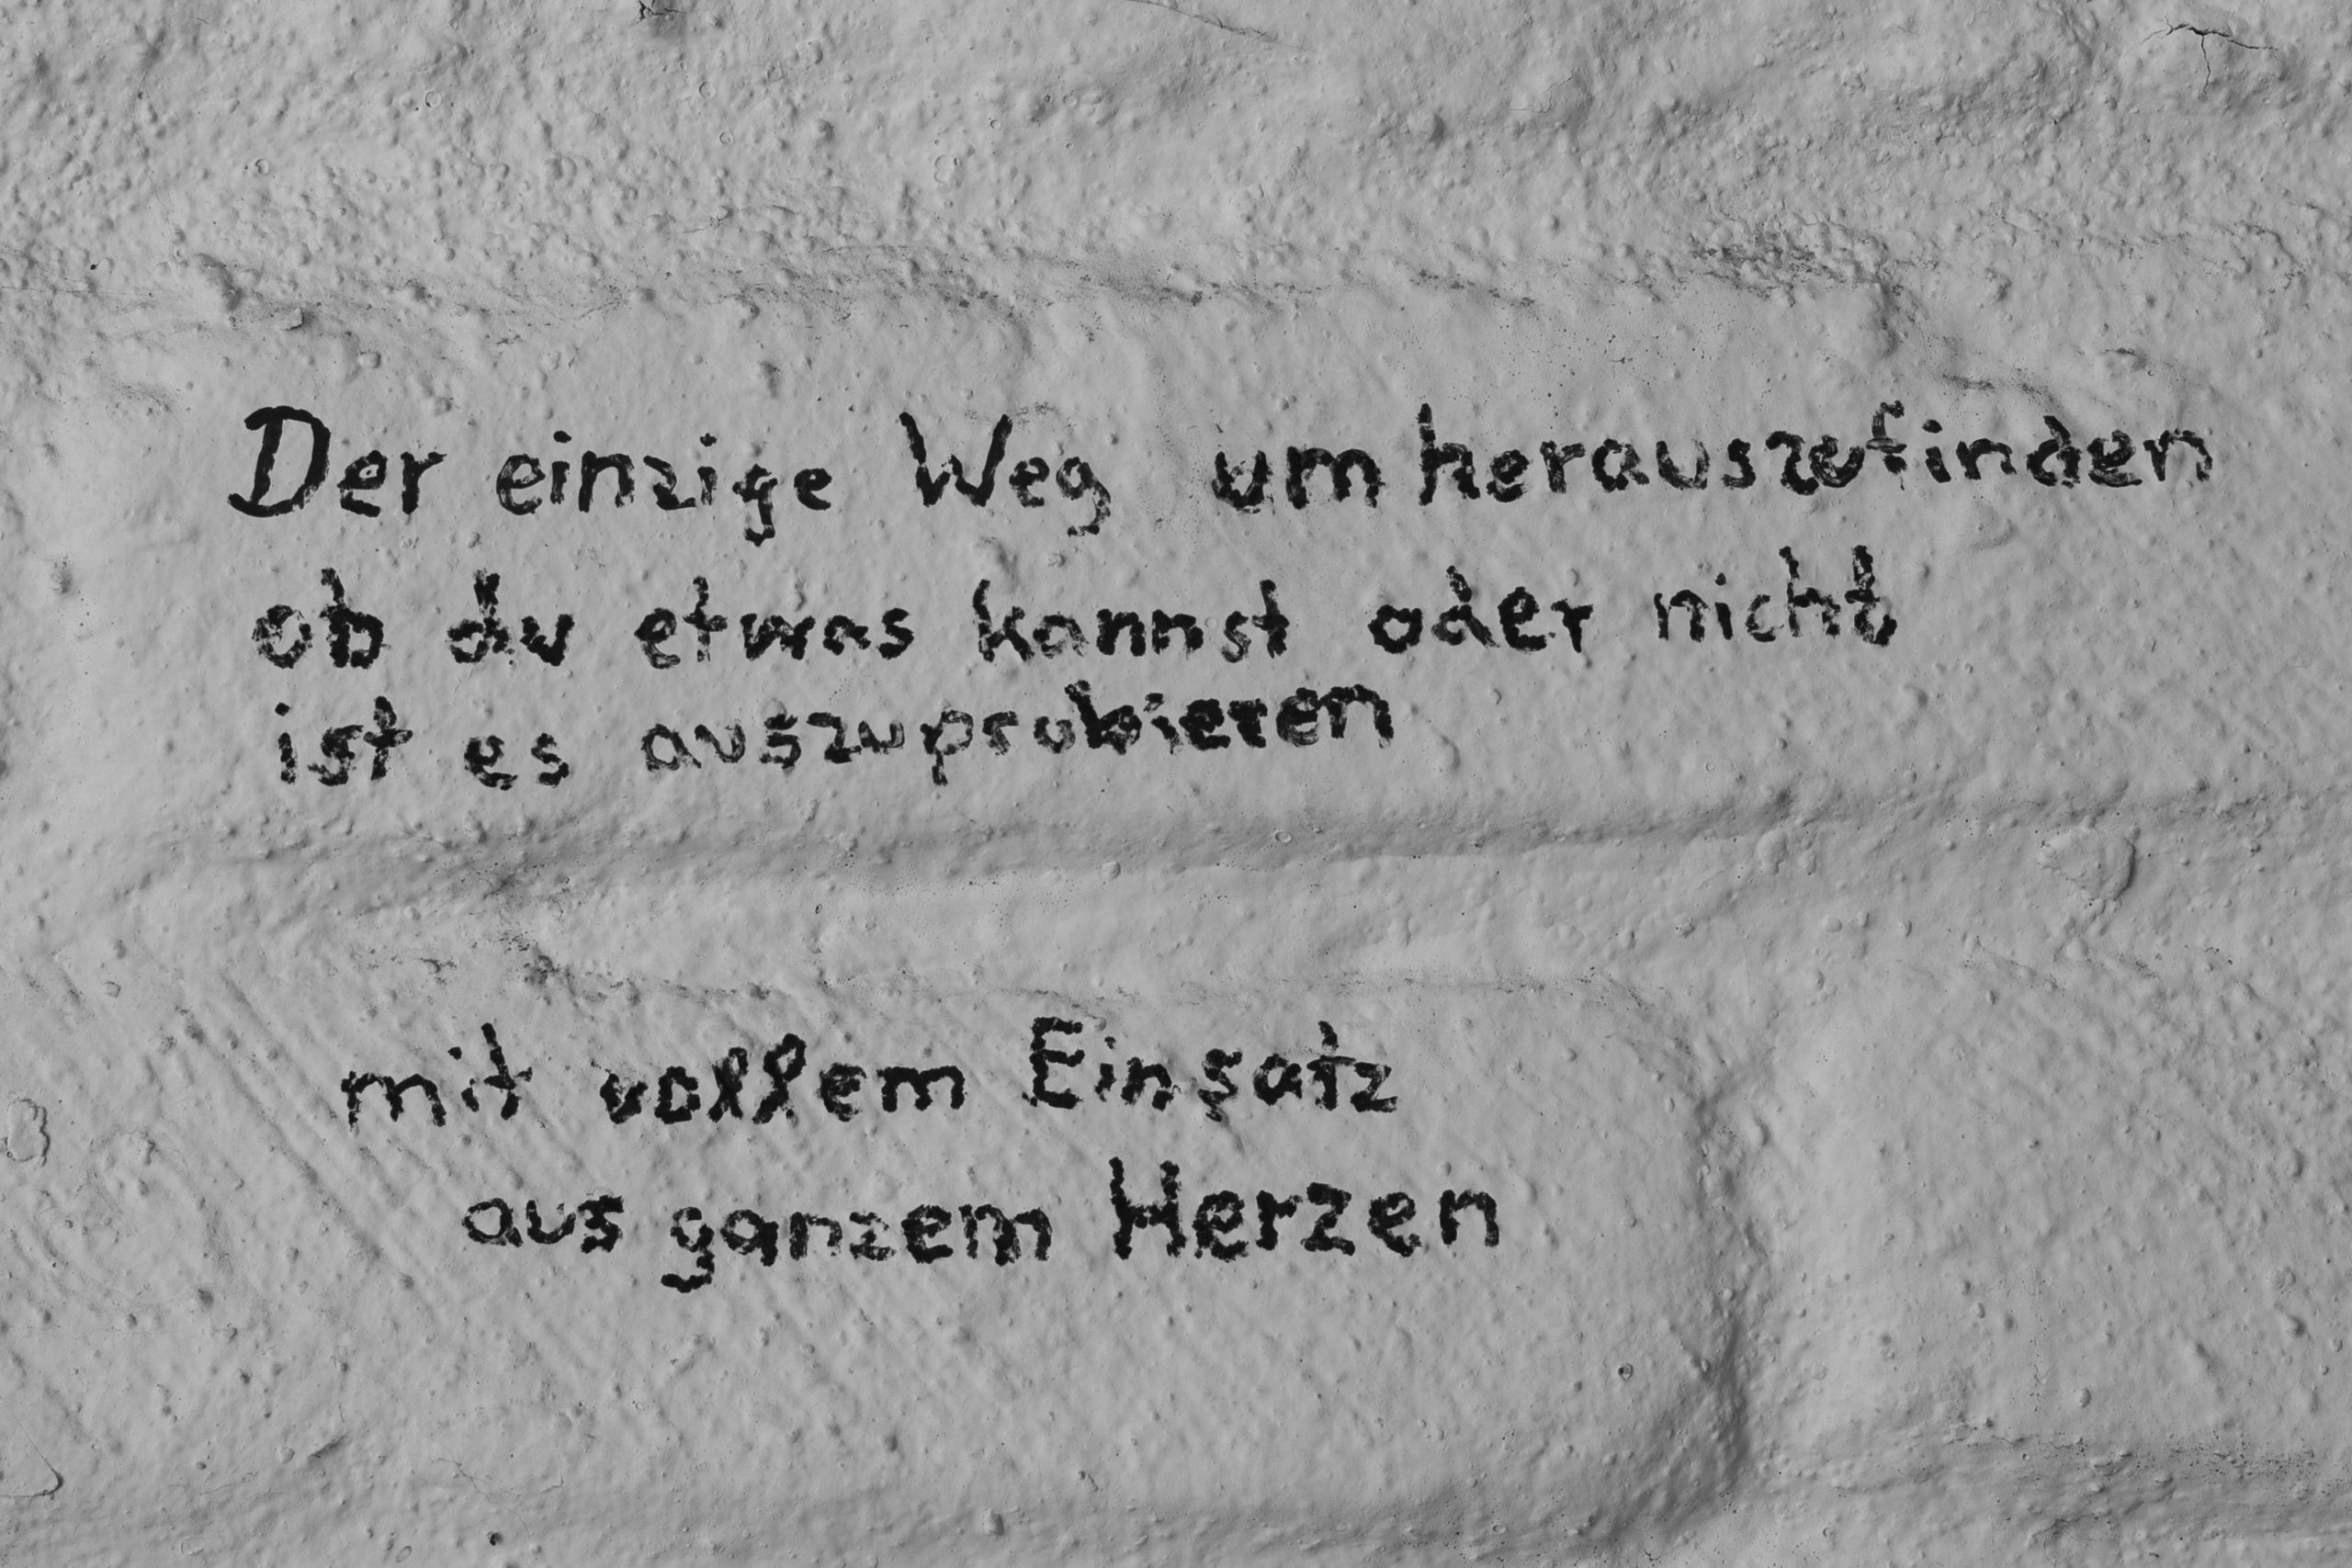 Der einzige Weg um herauszufinden
ob du etwas kannst oder nicht
ist es auszuprobieren
mit vollem Einsatz
aus ganzem Herzen